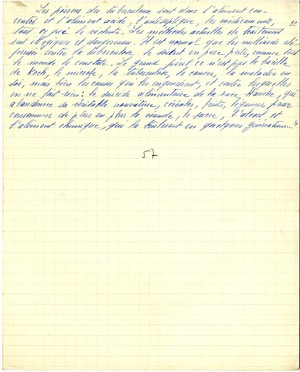 Les poisons du tuberculeux sont dans l'aliment con-
centré et l'aliment acide, l'antiseptique, les médicaments,
tout ce que le
sont illogiques et dangereux. Il est normal que les millions dé-
pensés contre la tuberculose le soient en pure perte, comme tout
le monde le constate. Le grand péril ce n'est pas le bacille
de Koch, le microbe, la tuberculose, le cancer, la maladie en
soi, mais bien les causes qui les engendrent, et contre lesquelles
on ne fait rien : le suicide alimentaire de la race blanche, qui
abandonne sa véritable nourriture, céréales, fruits, légumes pour
consommer de plus en plus la viande, le sucre, l'alcool et
l'aliment chimique, qui la tueront en quelques générations..."
57